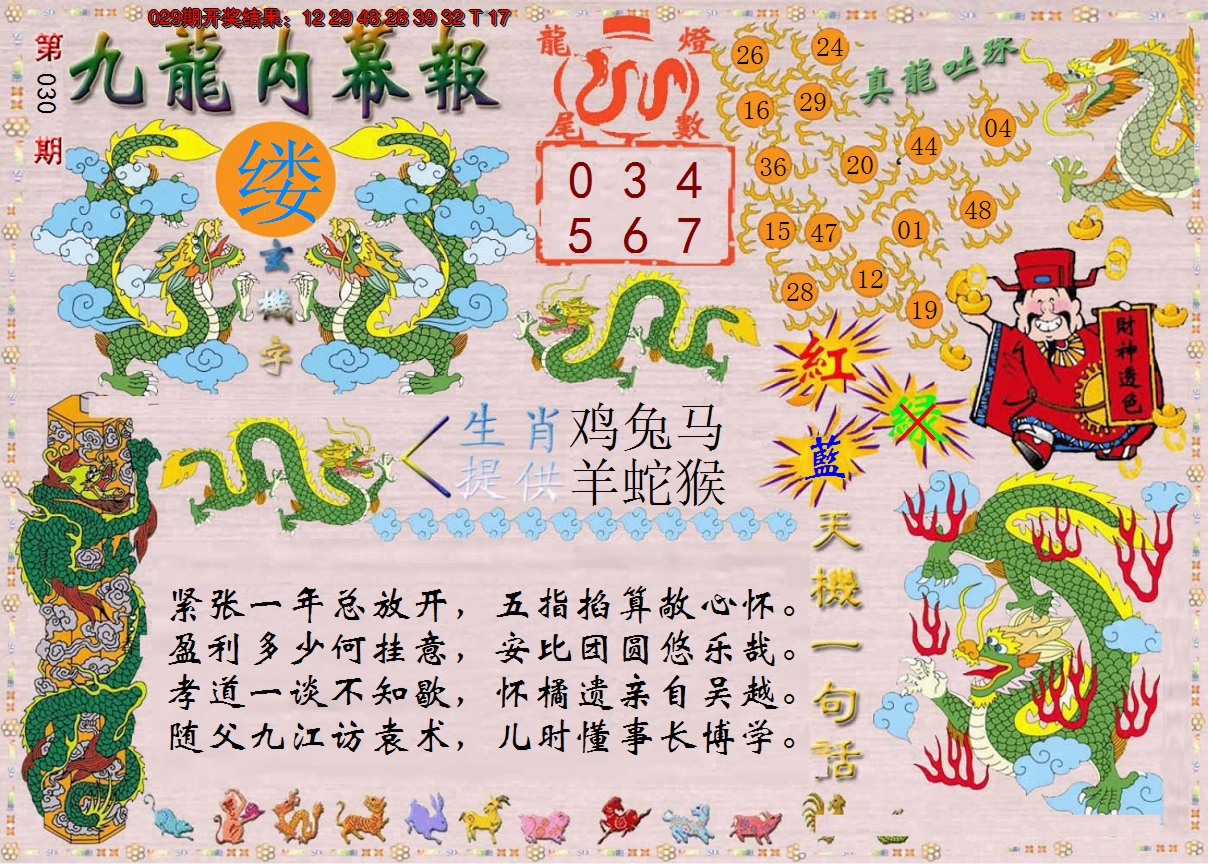 029期开奖结果：12 29 48 28 39 32 T 17
第030期
九龍内幕報
缕
玄機字
龍燈
尾數
0 3 4
5 6 7
真龍吐珠
26 24
16 29
44 04
36 20
48
15 47 01
28 12
19
財神透色
紅
绿
藍
生肖 鸡兔马
提供 羊蛇猴
天機一句話
紧张一年总放开，五指掐算敞心怀。
盈利多少何挂意，安比团圆悠乐哉。
孝道一谈不知歇，怀橘遗亲自吴越。
随父九江访袁术，儿时懂事长博学。